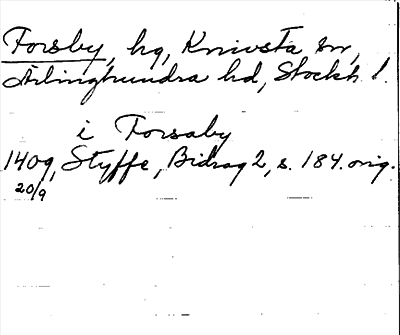 Forsby, hg, Knivsta sn,
Ärlinghundra hd, Stockh l.
i Forsaby
1409, Styffe, Bidrag 2, s. 184. orig.
20/9